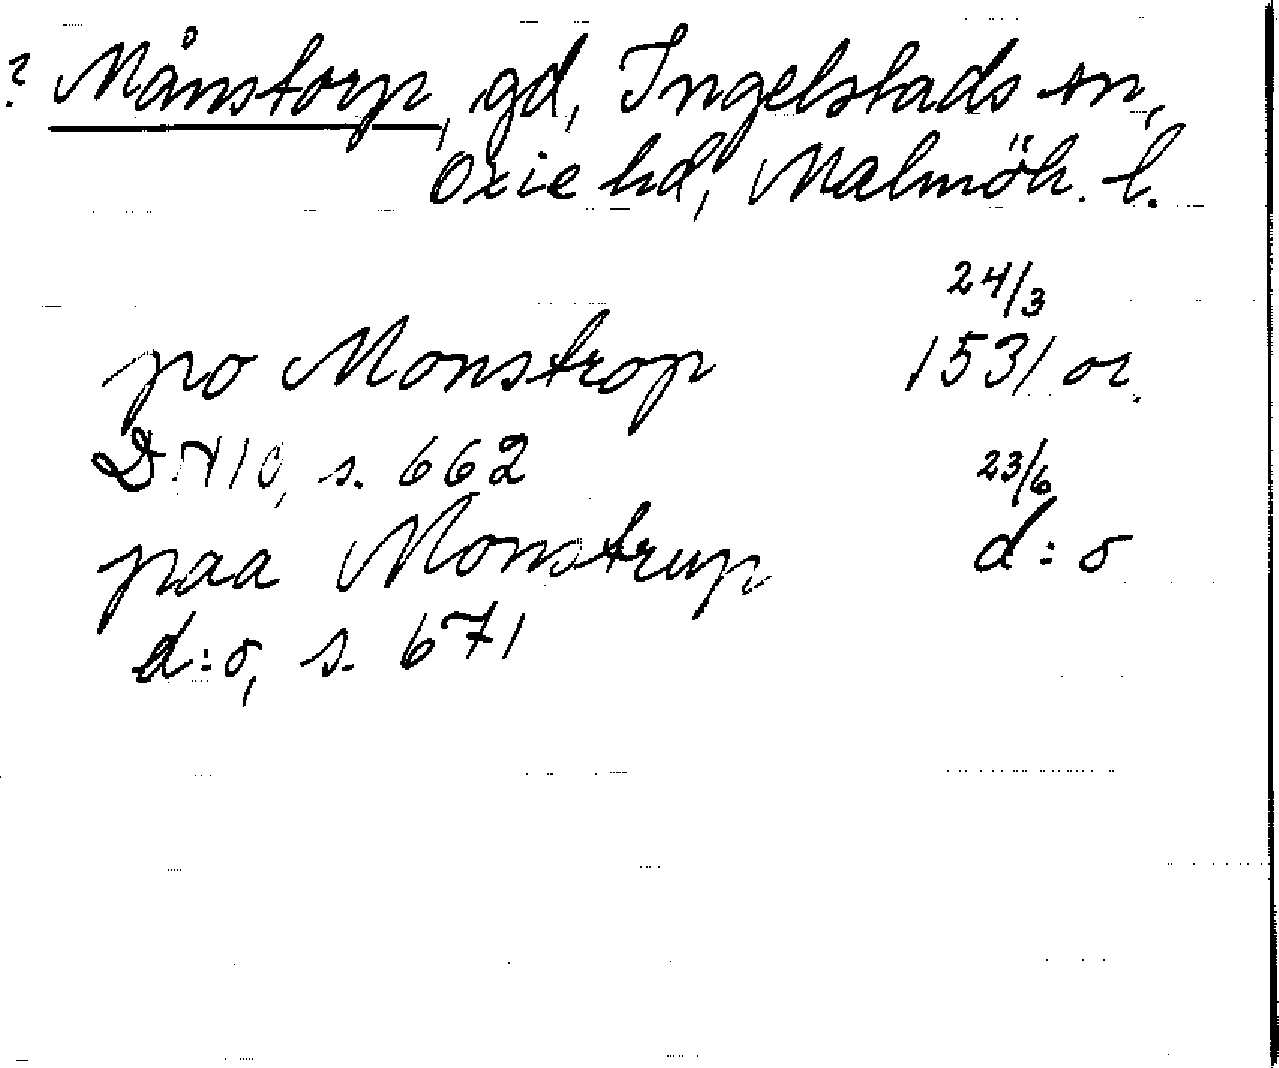 ? Månstorp, gd, Ingelstads sn,
Oxie hd, Malmöh. l.
24/3
po Monstrop 1531 or.
DN 10, s. 662
23/6
paa Monstrup d:o
d:o, s. 671